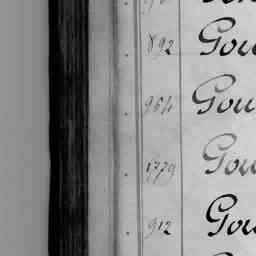 892 Gou
964 Gou
1779 Gou
912 Gou